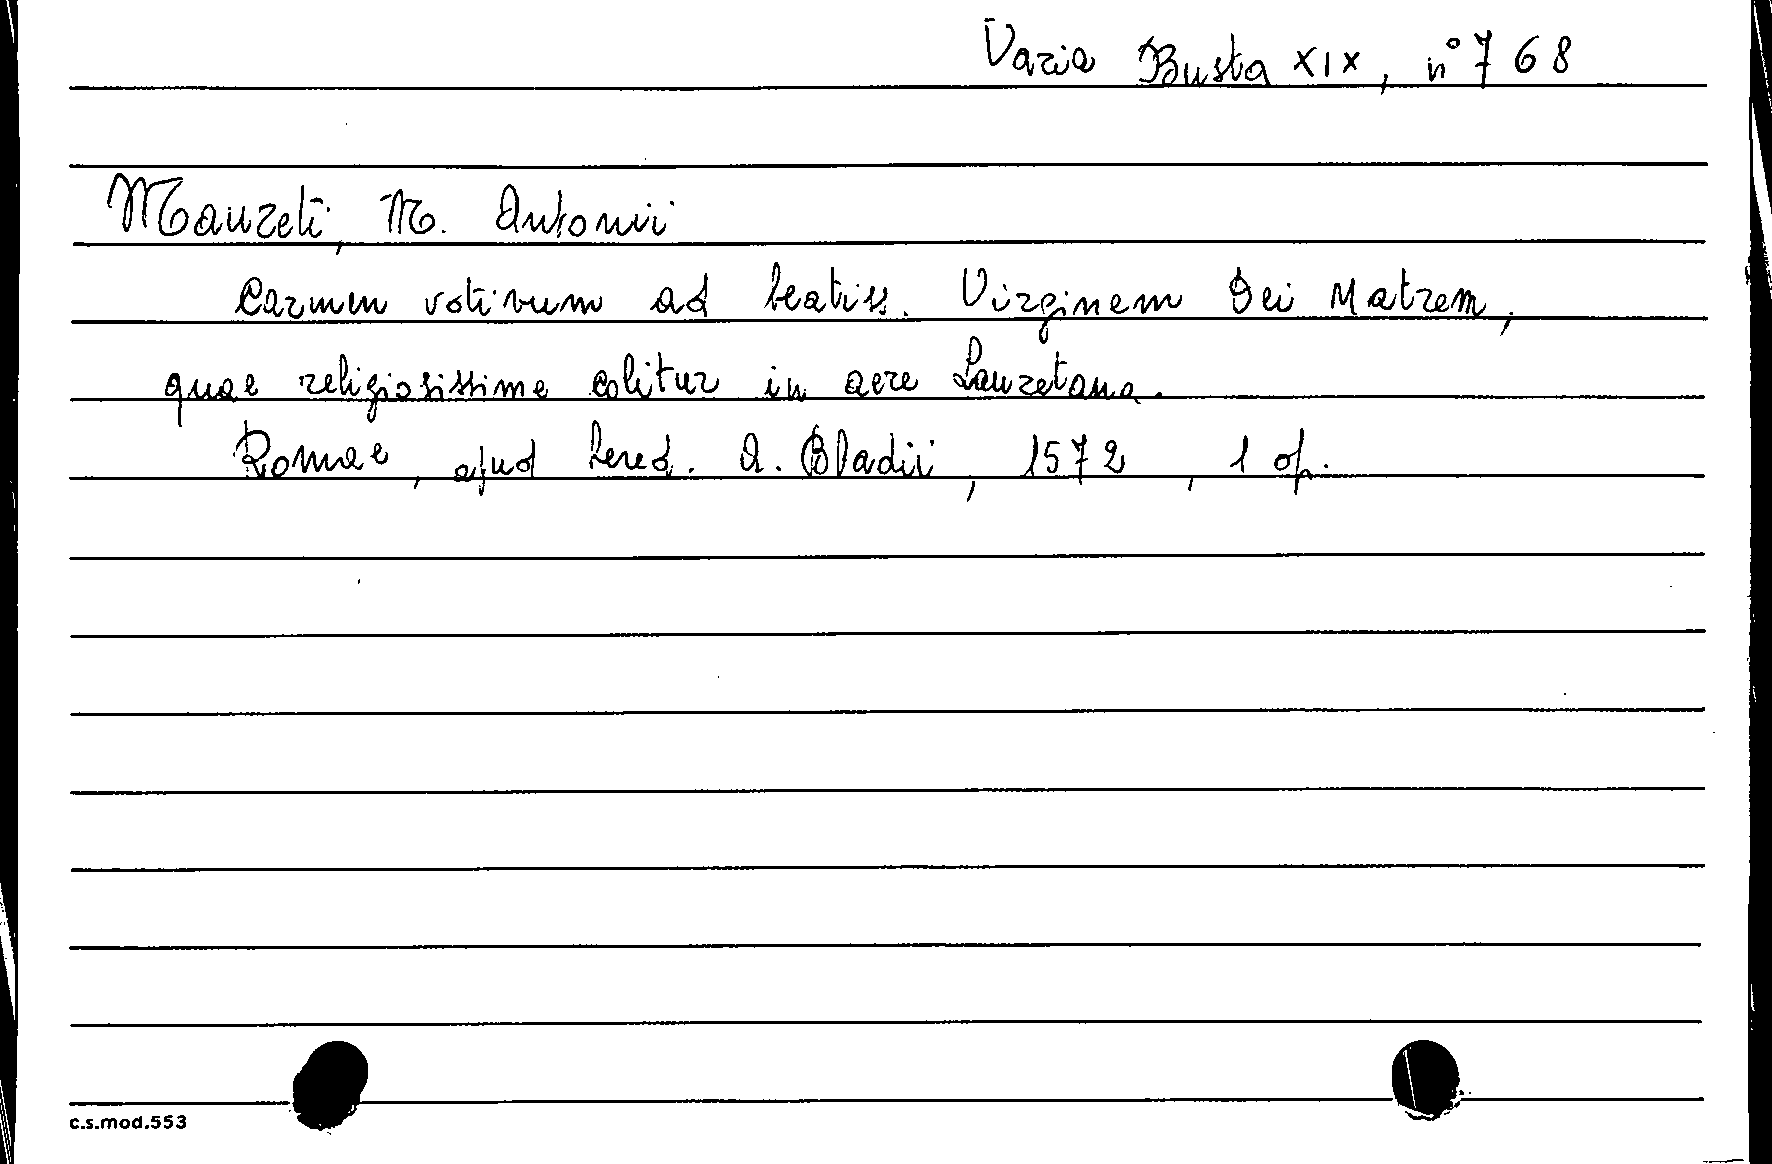 Varia Busta XIX, n° 768
Mauzeti, M. Antonii
Carmen votivum ad beatiss. Virginem Dei Matrem,
quae religiosissime colitur in aere Lauretana.
Romae, apud hered. A. Bladii, 1572, 1 op.
c.s.mod.553